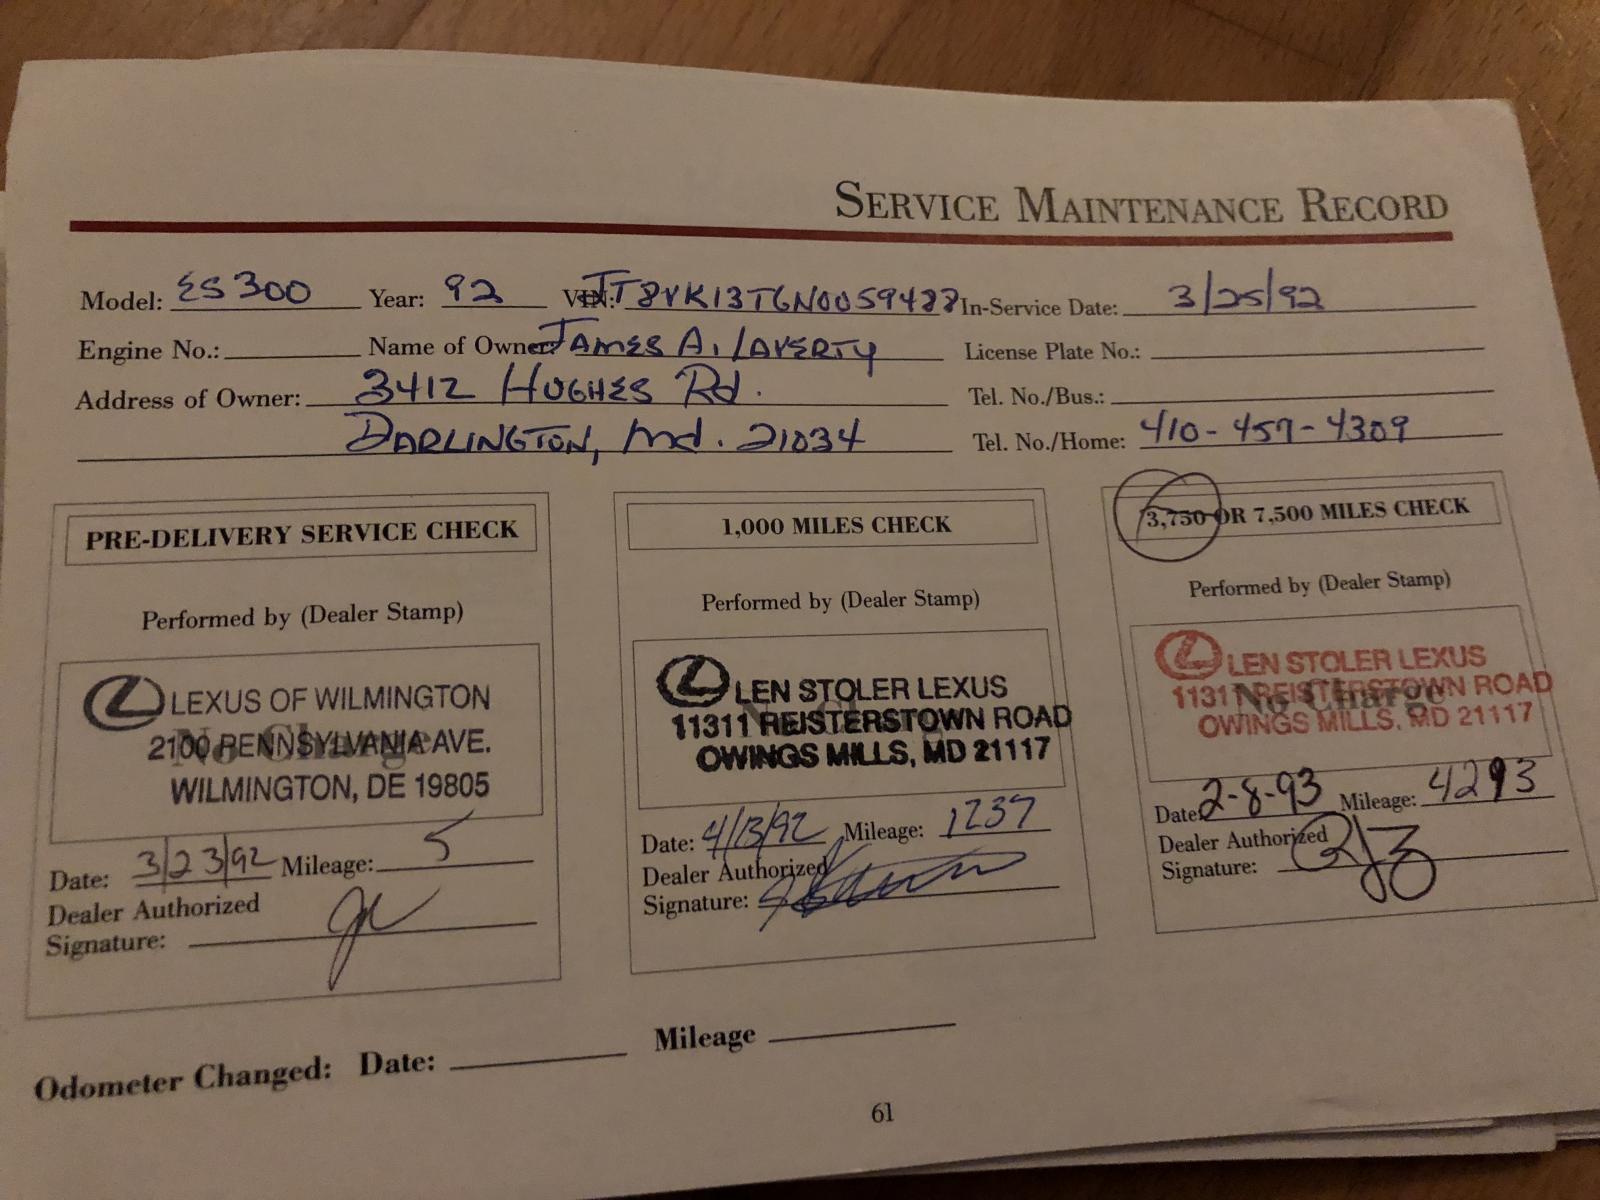 SERVICE MAINTENANCE RECORD
Model: ES300 Year: 92 VIN: JT8VK13T6N0059488 In-Service Date: 3/25/92
Engine No.: Name of Owner: JAMES A. LAVERTY License Plate No.:
Address of Owner: 3412 HUGHES Rd. Tel. No./Bus.:
DARLINGTON, Md. 21034 Tel. No./Home: 410-457-4309
PRE-DELIVERY SERVICE CHECK
Performed by (Dealer Stamp)
LEXUS OF WILMINGTON
2100 PENNSYLVANIA AVE.
No Charge
WILMINGTON, DE 19805
Date: 3/23/92 Mileage: 5
Dealer Authorized
Signature:
1,000 MILES CHECK
Performed by (Dealer Stamp)
LEN STOLER LEXUS
11311 REISTERSTOWN ROAD
OWINGS MILLS, MD 21117
Date: 4/13/92 Mileage: 1237
Dealer Authorized
Signature:
3,750 OR 7,500 MILES CHECK
Performed by (Dealer Stamp)
LEN STOLER LEXUS
11311 REISTERSTOWN ROAD
No Charge
OWINGS MILLS, MD 21117
Date: 2-8-93 Mileage: 4293
Dealer Authorized
Signature:
Odometer Changed: Date: Mileage
61